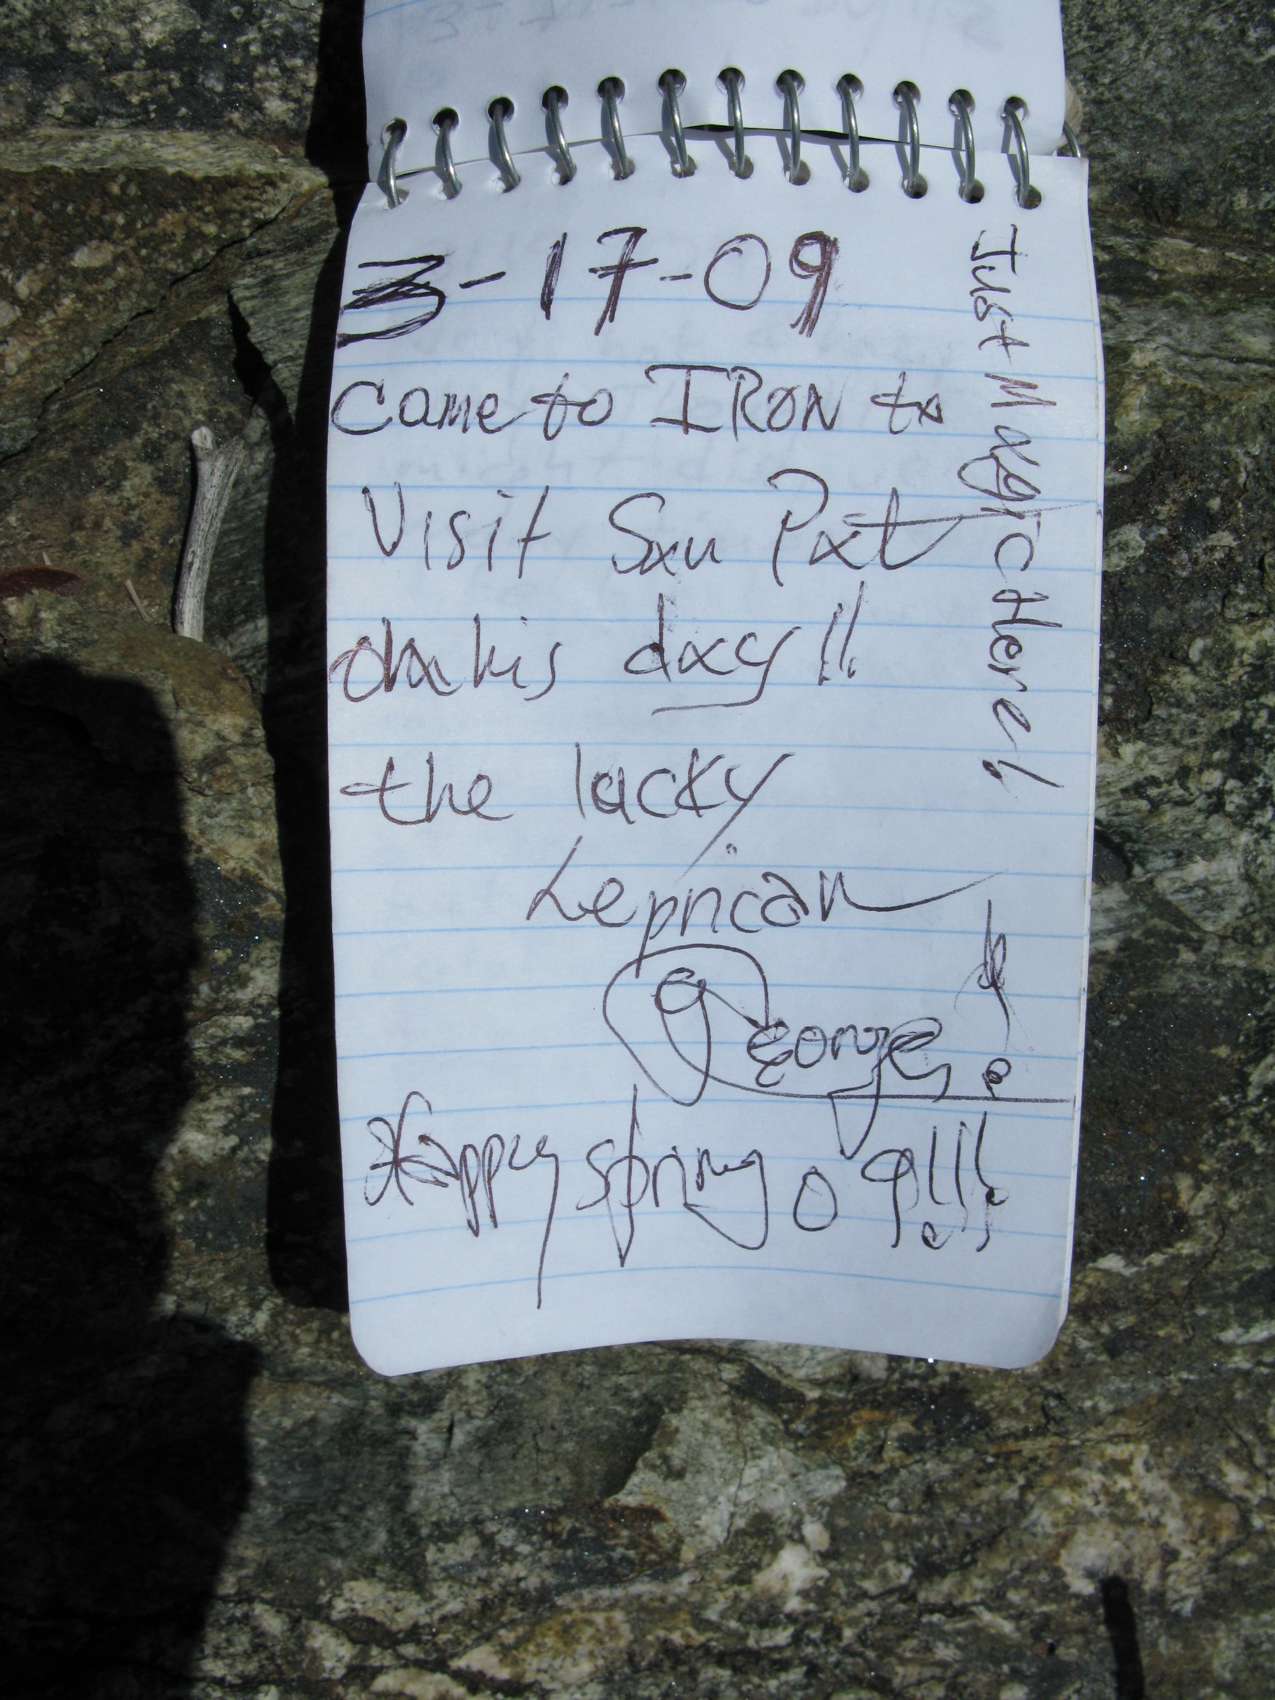 3-17-09
Came to IRON to
Visit San Pat
on his day!!
the lucky
Leprican
George
Happy spring 09!!!
Just Magic Here!